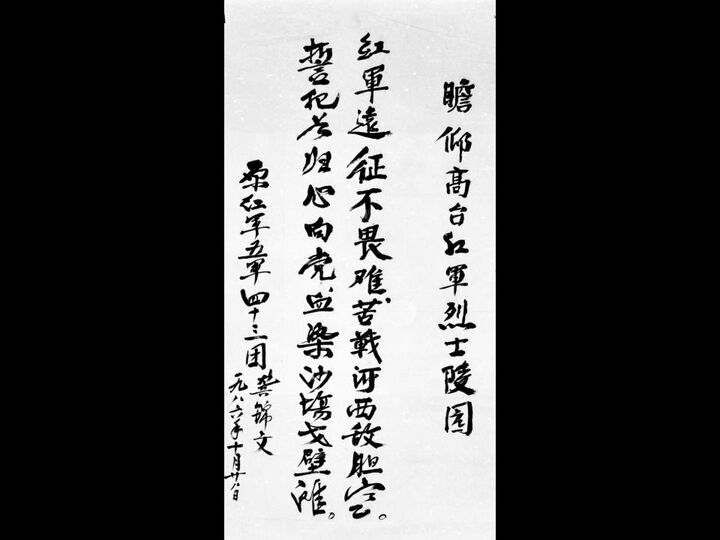 瞻仰髙台红軍烈士陵園
红軍遠征不畏难、苦戰河西敌胆空。
誓死若归心向党、血染沙塲戈壁滩。
原红军五軍四十三团 龚锦文
一九八六年十月廿八日